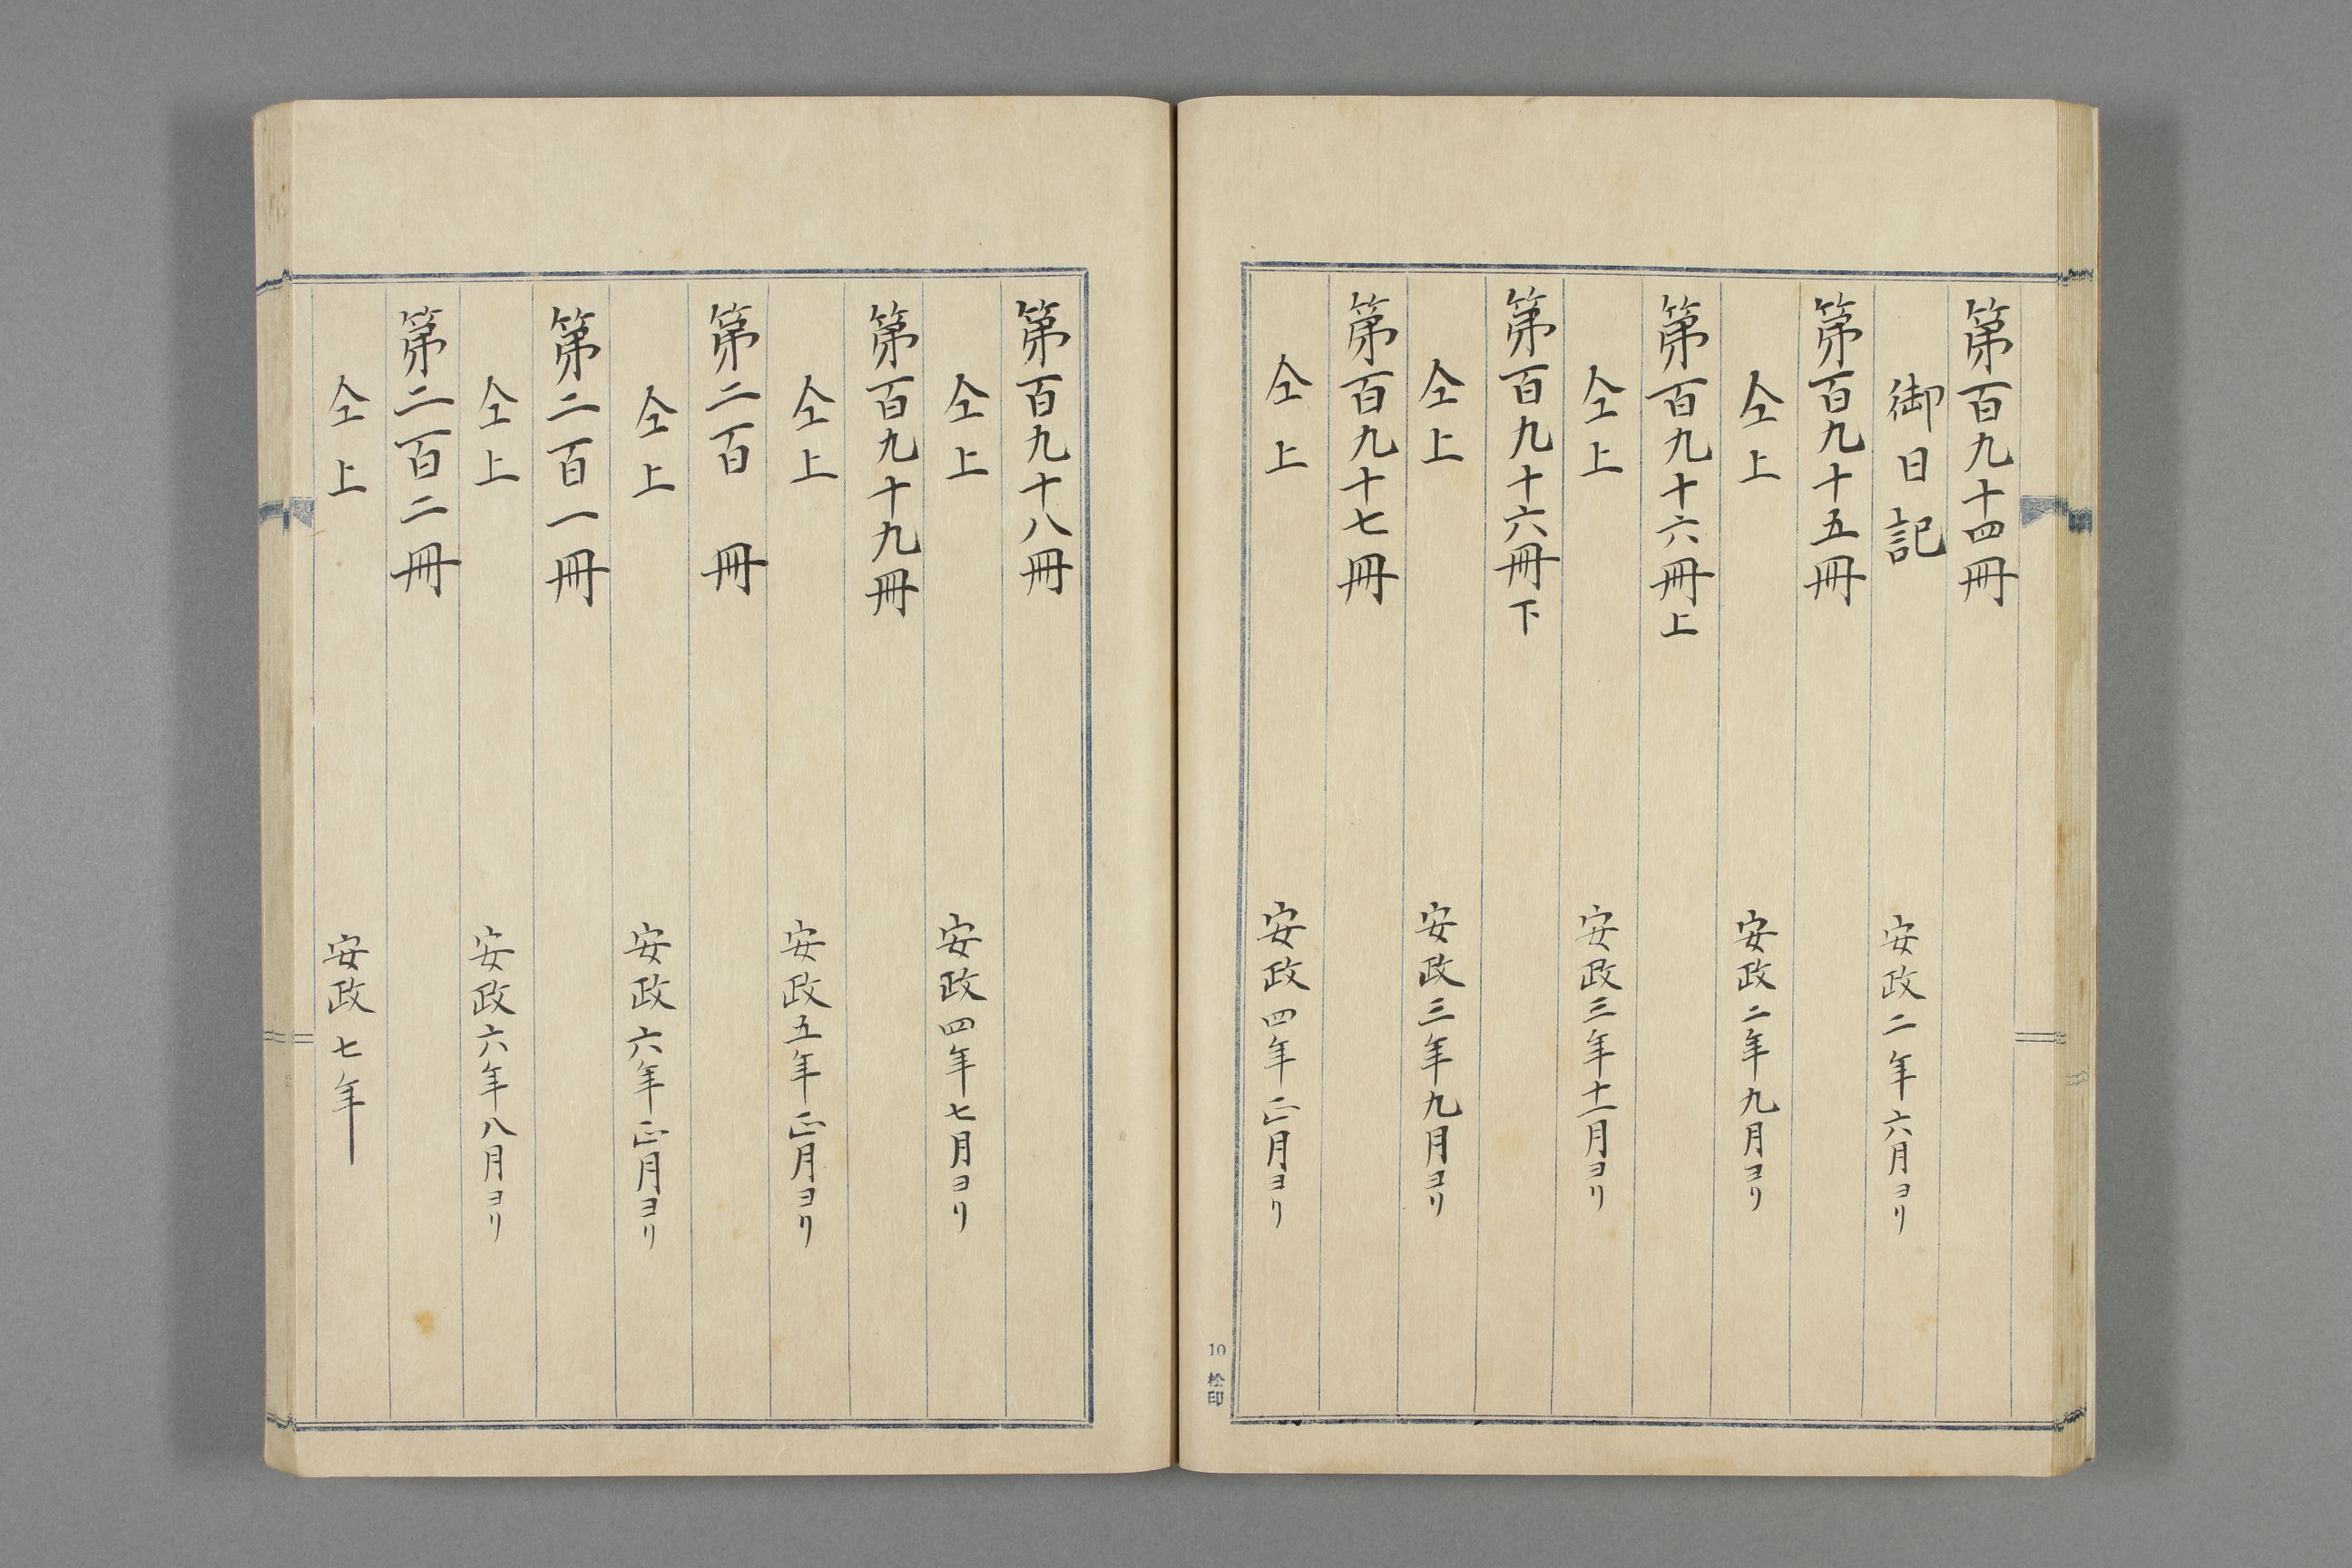 第百九十四冊
御日記 安政二年六月ヨリ
第百九十五冊
仝上 安政二年九月ヨリ
第百九十六冊上
仝上 安政三年十一月ヨリ
第百九十六冊下
仝上 安政三年九月ヨリ
第百九十七冊
仝上 安政四年正月ヨリ
10 松印
第百九十八冊
仝上 安政四年七月ヨリ
第百九十九冊
仝上 安政五年正月ヨリ
第二百冊
仝上 安政六年正月ヨリ
第二百一冊
仝上 安政六年八月ヨリ
第二百二冊
仝上 安政七年